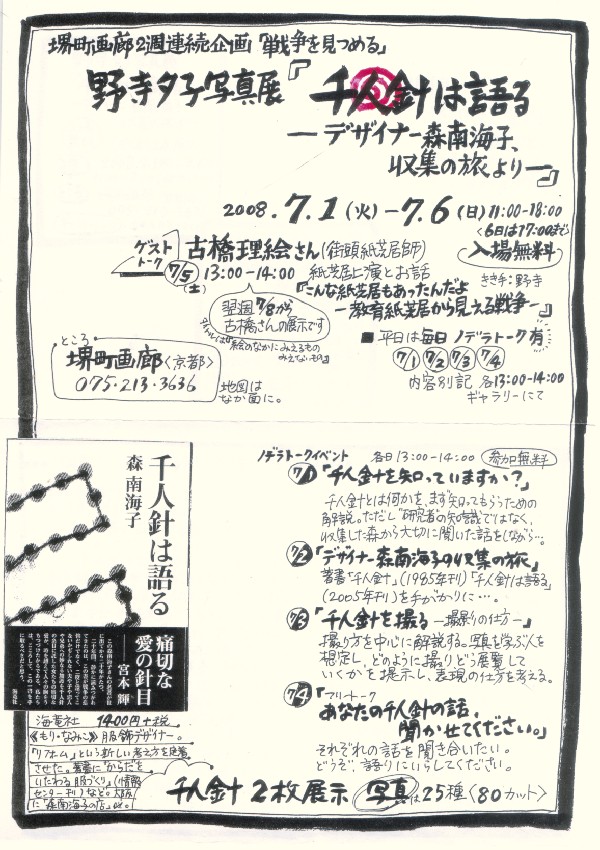 堺町画廊2週連続企画「戦争を見つめる」
野寺夕子写真展『千人針は語る
―デザイナー森南海子、
収集の旅より―』
2008.7.1(火)―7.6(日)11:00-18:00
〈6日は17:00まで
入場無料
ゲスト
トーク
7/5(土)
古橋理絵さん(街頭紙芝居師)
13:00-14:00 紙芝居上演とお話
『こんな紙芝居もあったんだよ
―教育紙芝居から見える戦争―』
きき手:野寺
翌週7/8から
古橋さんの展示です
タイトルは『絵のなかにみえるもの
みえないもの』
■ 平日は毎日ノデラトーク有
7/1 7/2 7/3 7/4
内容別記 各13:00-14:00
ギャラリーにて
ところ
堺町画廊〈京都〉
075.213.3636
地図は
なか面に。
千人針は語る
森 南海子
痛切な
愛の針目
宮本 輝
海竜社
海竜社 1400円+税
《もり・なみこ》服飾デザイナー。
「リフォーム」という新しい考え方を定着
させた。著書に「からだを
いたわる服づくり」(情報
センター刊)など。大阪
に「森南海子の店」有。
ノデラトークイベント 各日13:00-14:00 参加無料
7/1「千人針を知っていますか?」
千人針とは何かを まず知ってもらうための
解説。ただし"研究者"の知識ではなく、
収集した森から大切に聞いた話をしながら…。
7/2「デザイナー森南海子の収集の旅」
著書「千人針」(1985年刊)「千人針は語る」
(2005年刊)を手がかりに…。
7/3「千人針を撮る―撮影の仕方―」
撮り方を中心に解説する。写真を学ぶ人を
想定し、どのように撮りどう展覧して
いくかを提示し、表現の仕方を考える。
7/4「フリートーク
あなたの千人針の話、
聞かせてください。」
それぞれの話を聞き合いたい。
どうぞ、語りにいらしてください。
千人針2枚展示 写真は25種〈80カット〉